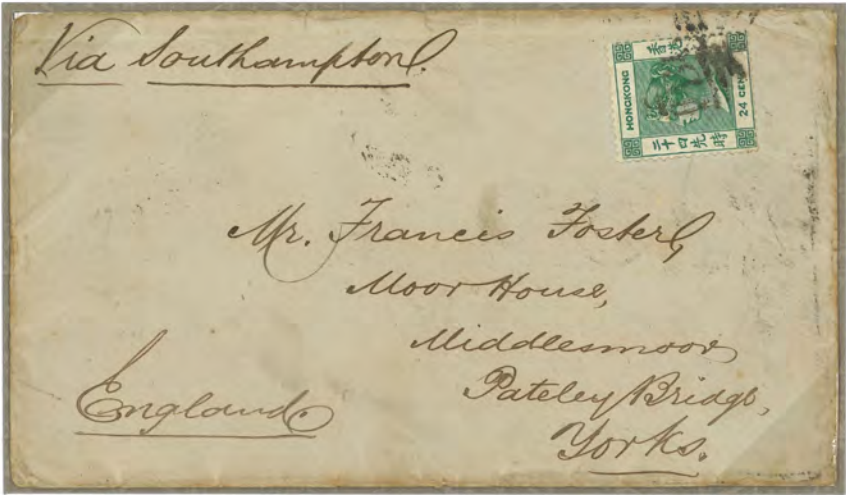 Via Southampton.
香港
HONGKONG
24 CEN
二十四先時
Mr. Francis Foster,
Moor House,
Middlesmoor,
Pateley Bridge,
Yorks.
England